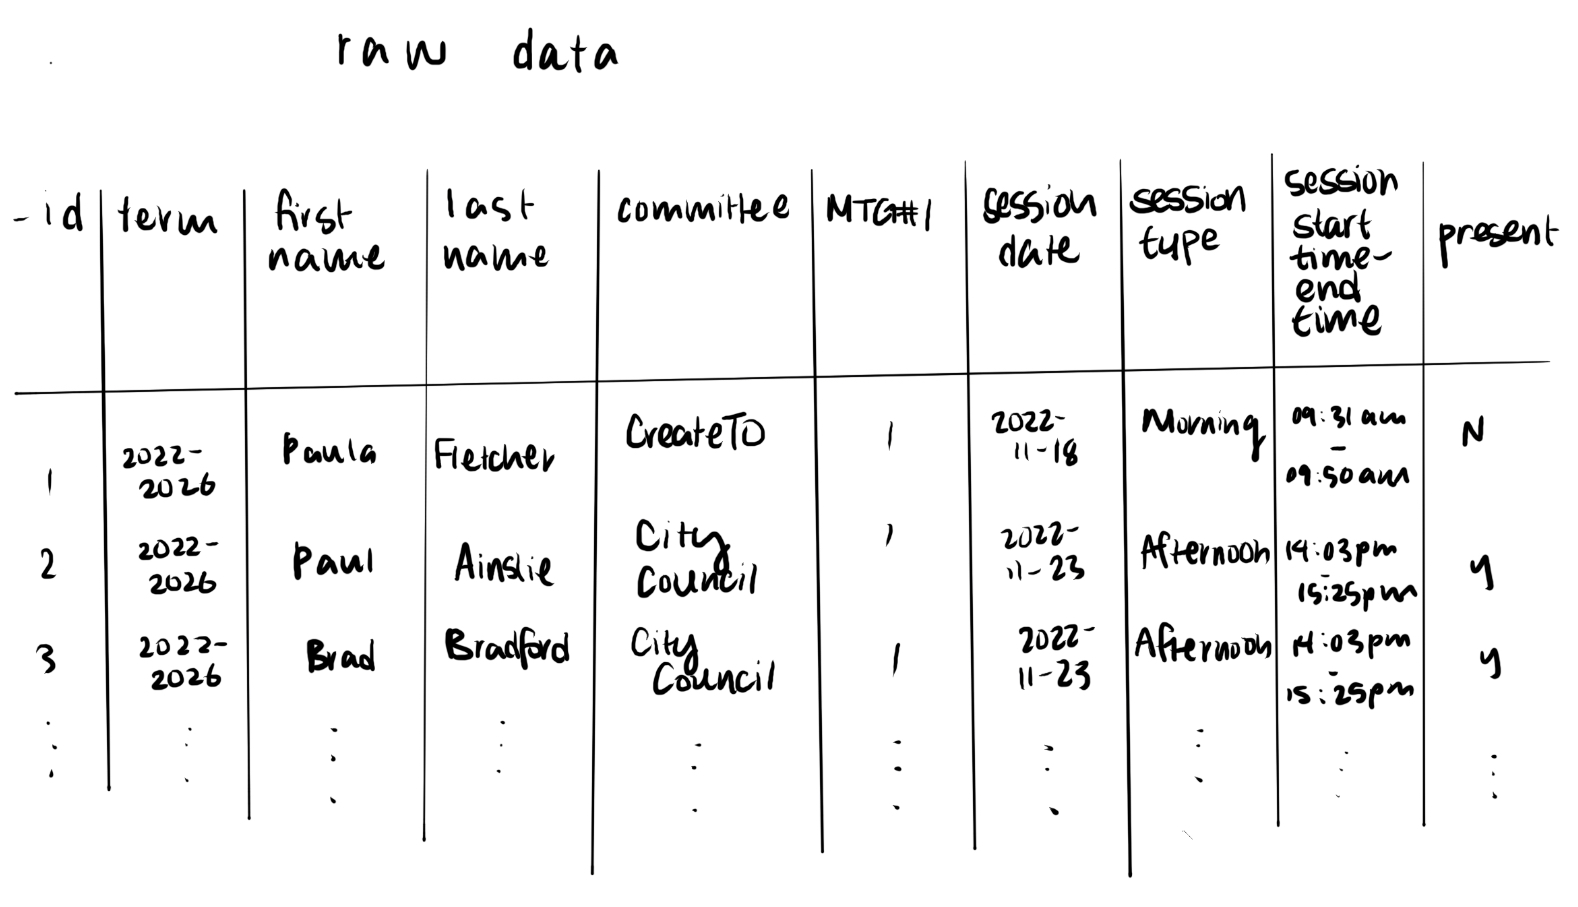 raw data
-id term first name last name committee MTG#1 session date session type session start time- end time present
1 2022-2026 Paula Fletcher CreateTO 1 2022-11-18 Morning 09:31am - 09:50am N
2 2022-2026 Paul Ainslie City Council 1 2022-11-23 Afternoon 14:03pm - 15:25pm y
3 2022-2026 Brad Bradford City Council 1 2022-11-23 Afternoon 14:03pm - 15:25pm y